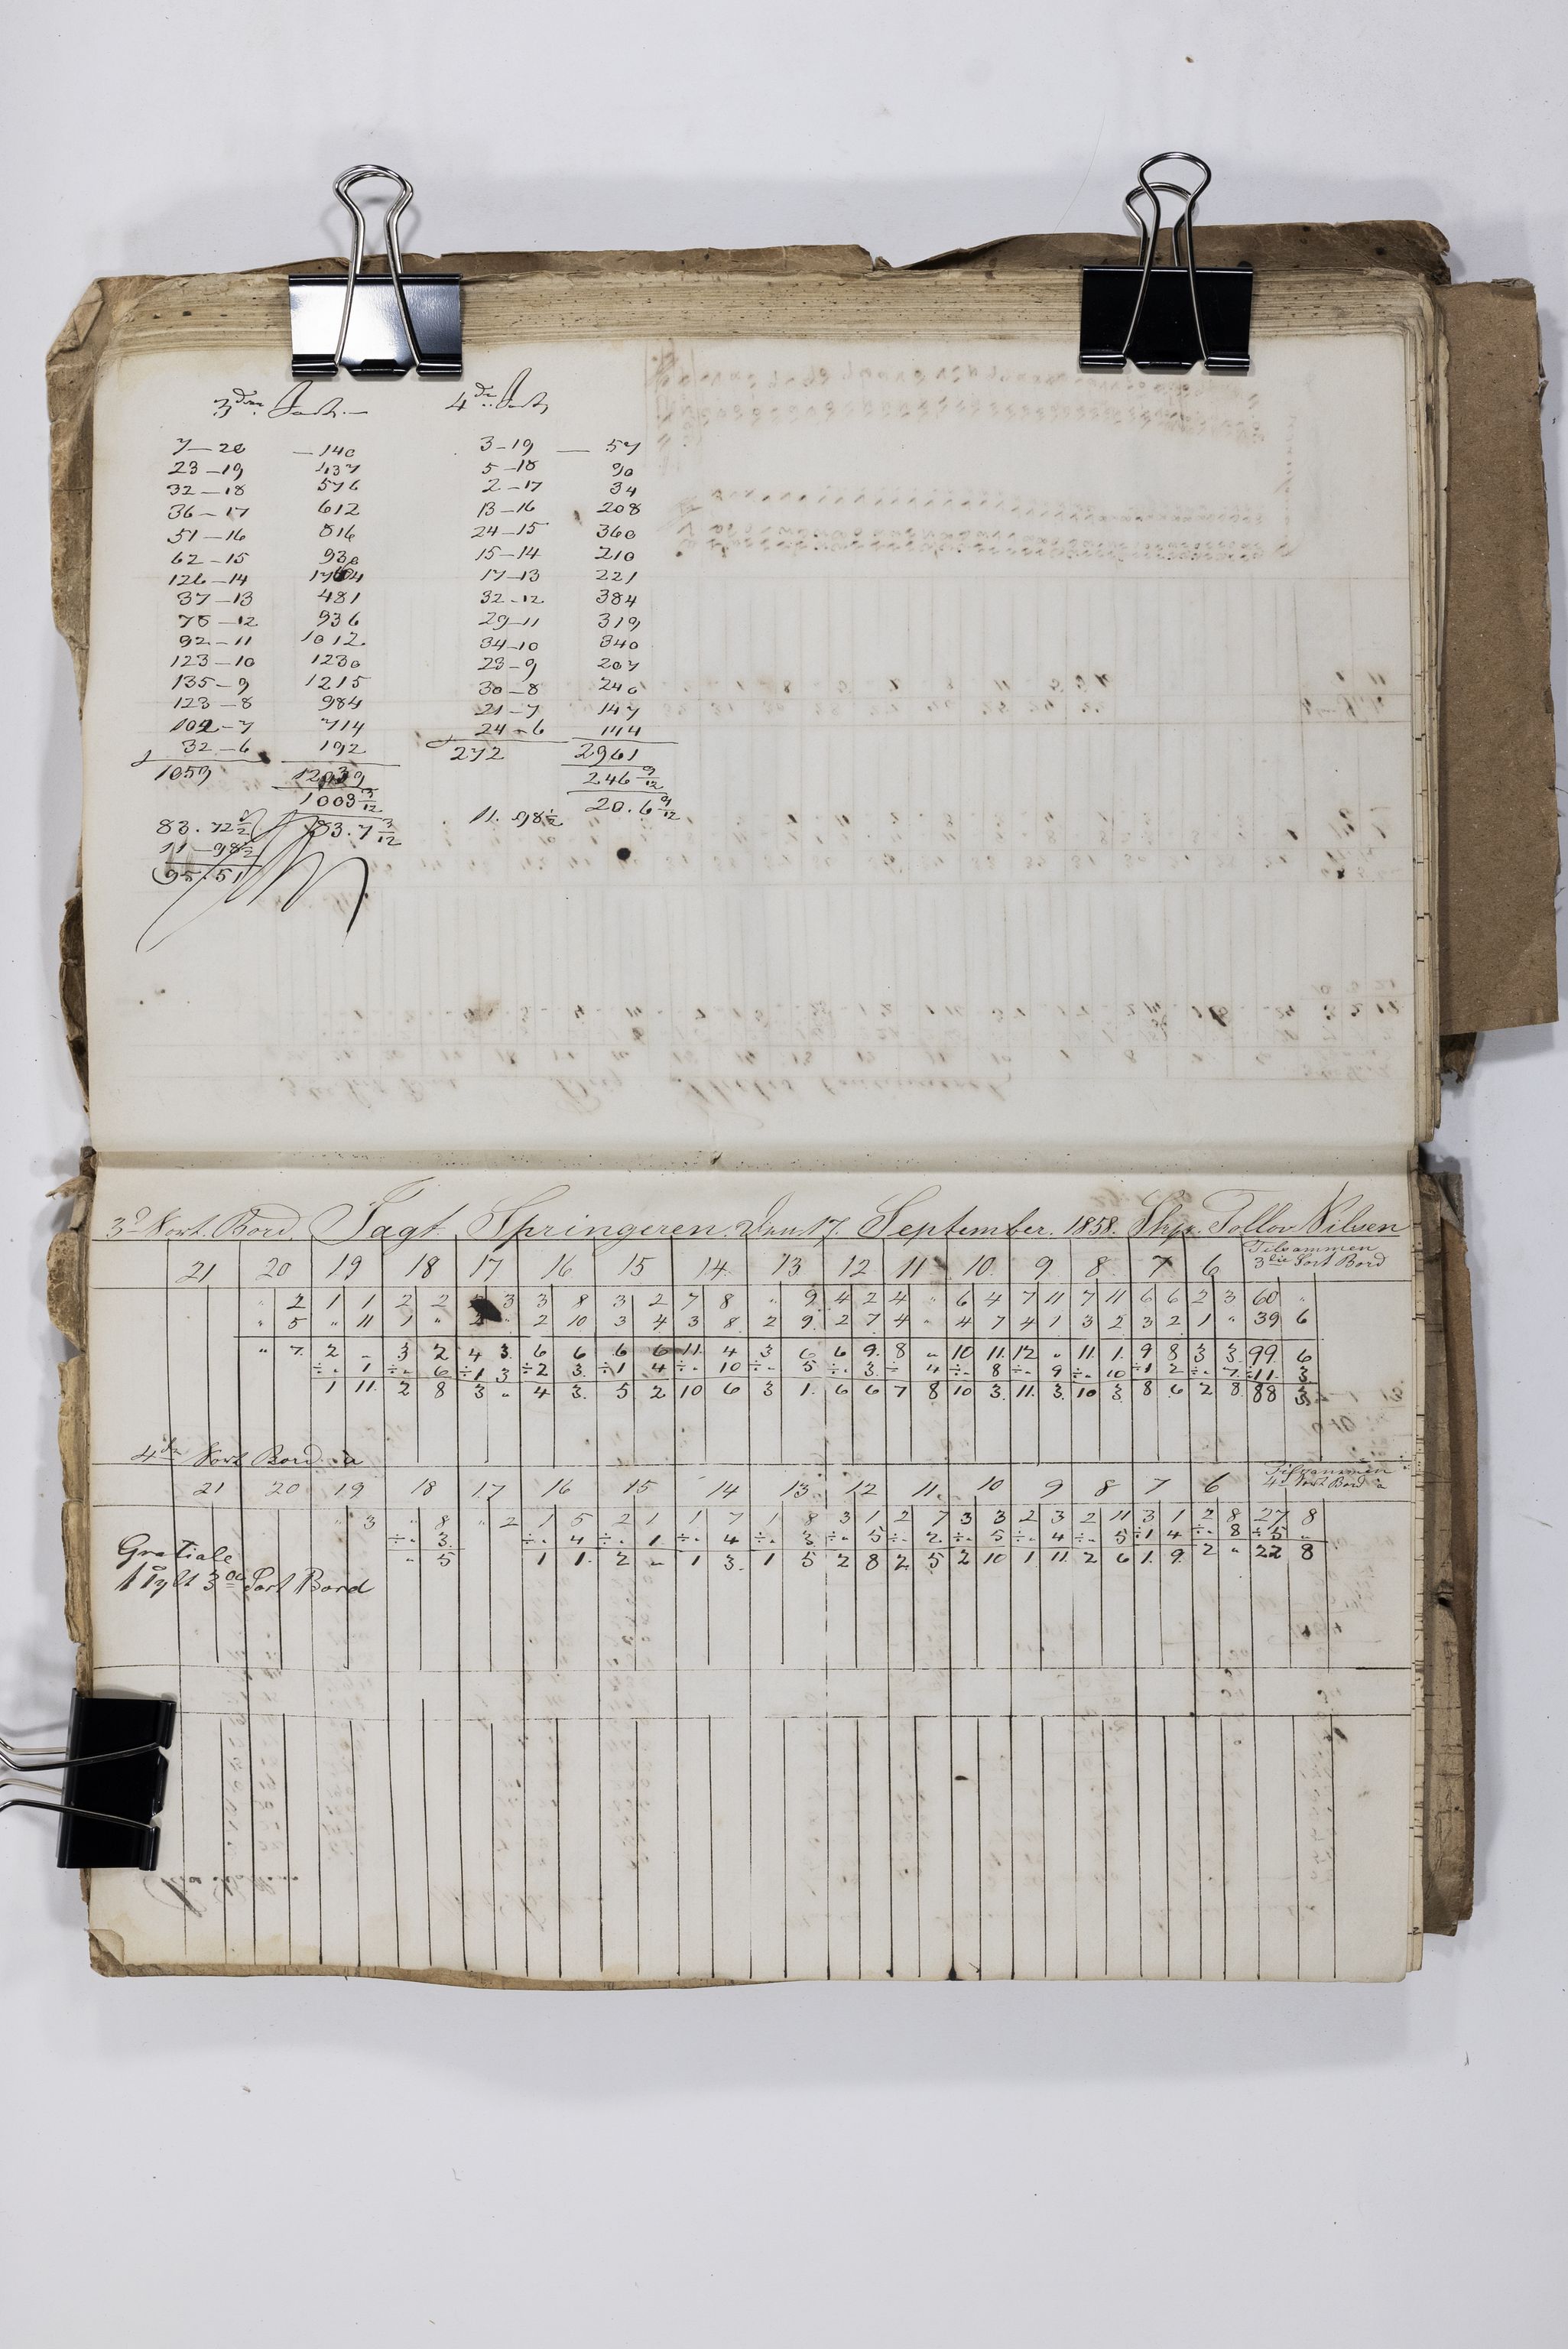 3die Sort. 4de Sort
7–20 – 140 3–19 — 57
23–19 437 5–18 90
32–18 576 2–17 34
36–17 612 13–16 208
51–16 816 24–15 360
62–15 930 15–14 210
126–14 1764 17–13 221
37–13 481 32–12 384
78–12 936 29–11 319
92–11 1012 34–10 340
123–10 1230 23–9 207
135–9 1215 30–8 240
123–8 984 21–7 147
102–7 714 24–6 144
32–6 192 272 2961
1059 12039 246 9/12
1003 3/12 20.6 9/12
83.72½ 83.7 3/12 11.98½
11–98½
95.51
3d Sort. Bord. Jagt Springeren. Den 17. September. 1858. Skpr. Tollov Nilsen
21 20 19 18 17 16 15 14. 13 12 11 10. 9 8 7 6 Tilsammen 3die Sort Bord
" 2 1 1 2 2 3 3 8 3 2 7 8 " 9 4 2 4 " 6 4 7 11 7 11 6 6 2 3 60 "
" 5 " 11 1 " 2 " 2 10 3 4 3 8 2 9 2 7 4 " 4 7 4 1 3 2 3 2 1 " 39 6
" 7 2 " 3 2 4 3 6 6 6 6 11 4 3 6 6 9 8 " 10 11 12 " 11 1 9 8 3 3 99 6
÷" 1 ÷" 6 ÷1 3 ÷2 3 ÷1 4 ÷" 10 ÷" 5 ÷" 3 ÷ 4 ÷" 8 ÷" 9 ÷" 10 ÷1 2 ÷" 7 ÷11 3
1 11 2 8 3 " 4 3 5 2 10 6 3 1 6 6 7 8 10 3 11 3 10 3 8 6 2 8 88 3
4de Sort Bord a
21 20 19 18 17 16 15 14 13 12 11 10 9 8 7 6 Tilsammen 4de Sort Bord a
" 3 " 8 " 2 1 5 2 1 1 7 1 8 3 1 2 7 3 3 2 3 2 11 3 1 2 8 27 8
÷" 3 ÷" 4 ÷" 1 ÷" 4 ÷" 3 ÷" 5 ÷" 2 ÷" 5 ÷" 4 ÷" 5 ÷1 4 ÷" 8 ÷5 "
" 5 1 1 2 " 1 3 1 5 2 8 2 5 2 10 1 11 2 6 1 9 2 " 22 8
Gratiale
3die Sort Bord